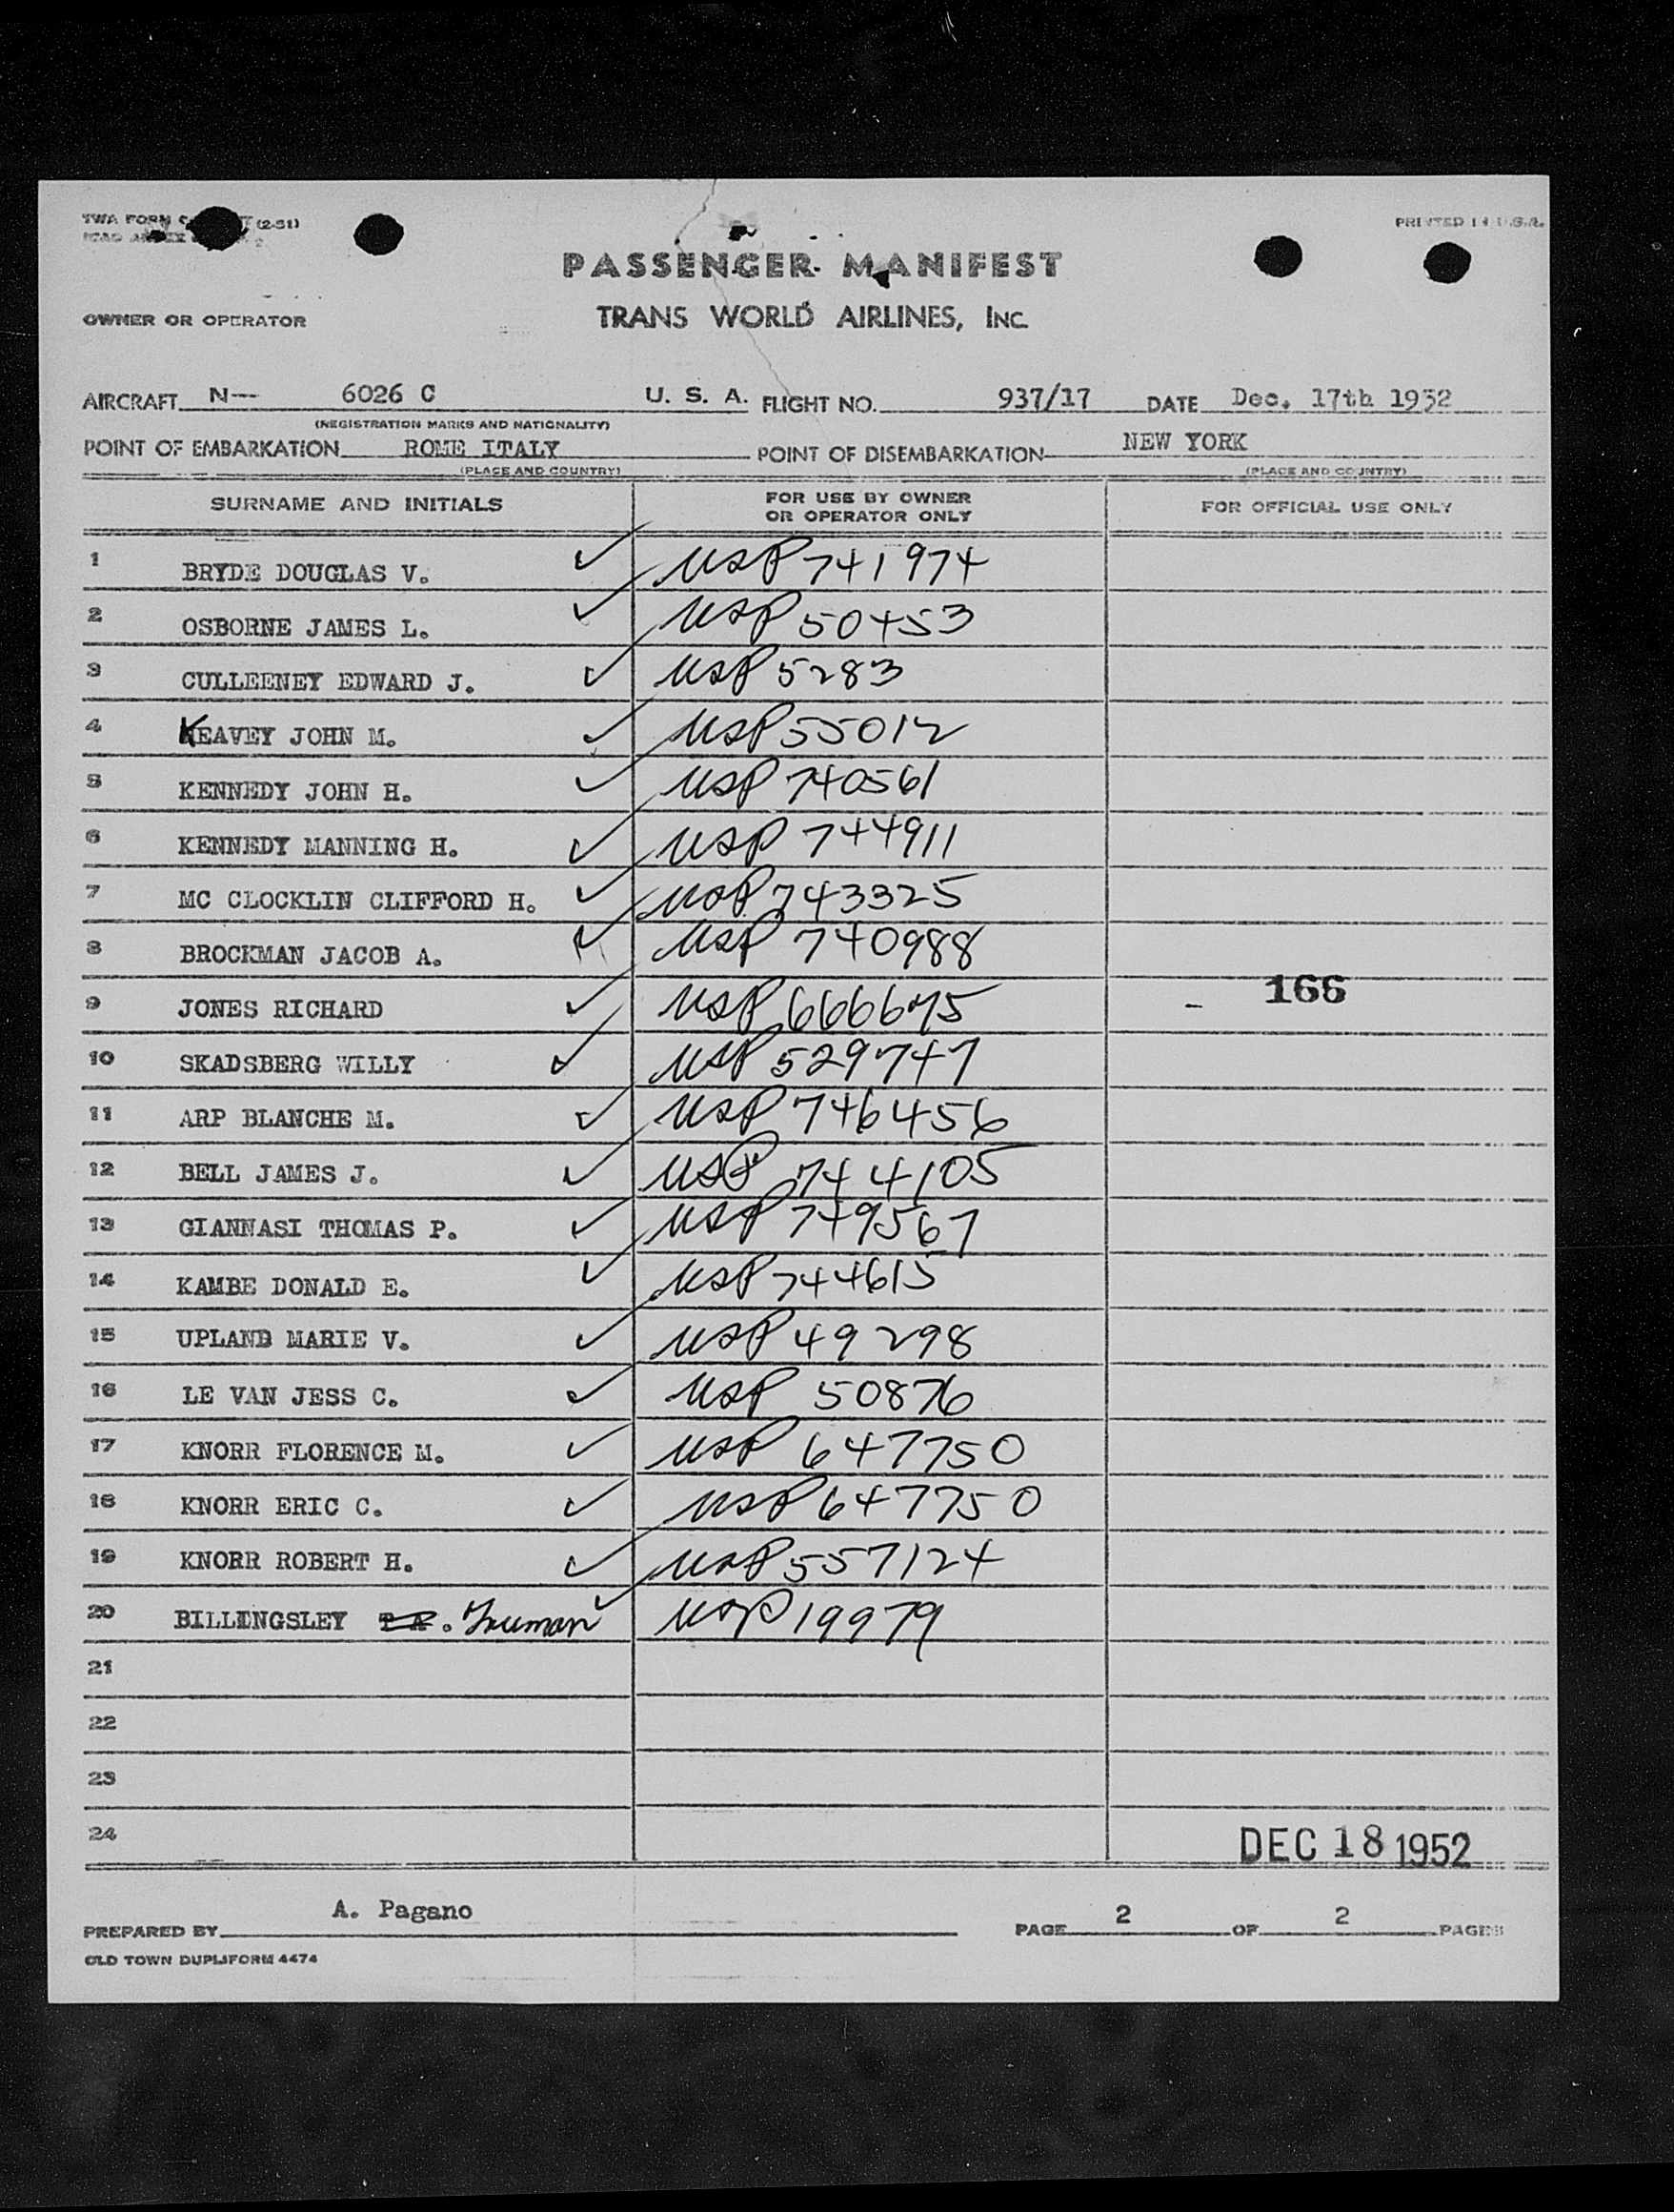 TWA FORM (2-51) PRINTED IN U.S.A.
PASSENGER MANIFEST
OWNER OR OPERATOR TRANS WORLD AIRLINES, INC.
AIRCRAFT N-- 6026 C U. S. A. FLIGHT NO. 937/17 DATE Dec. 17th 1952
(REGISTRATION MARKS AND NATIONALITY)
POINT OF EMBARKATION ROME ITALY POINT OF DISEMBARKATION NEW YORK
(PLACE AND COUNTRY) (PLACE AND COUNTRY)
SURNAME AND INITIALS FOR USE BY OWNER OR OPERATOR ONLY FOR OFFICIAL USE ONLY
1 BRYDE DOUGLAS V. ✓ USP 741974
2 OSBORNE JAMES L. ✓ USP 50453
3 CULLEENEY EDWARD J. ✓ USP 5283
4 KEAVEY JOHN M. ✓ USP 55012
5 KENNEDY JOHN H. ✓ USP 740561
6 KENNEDY MANNING H. ✓ USP 744911
7 MC CLOCKLIN CLIFFORD H. ✓ USP 743325
8 BROCKMAN JACOB A. ✓ USP 740988
9 JONES RICHARD ✓ USP 666675 - 166
10 SKADSBERG WILLY ✓ USP 529747
11 ARP BLANCHE M. ✓ USP 746456
12 BELL JAMES J. ✓ USP 744105
13 GIANNASI THOMAS P. ✓ USP 749567
14 KAMBE DONALD E. ✓ USP 744615
15 UPLAND MARIE V. ✓ USP 49298
16 LE VAN JESS C. ✓ USP 50876
17 KNORR FLORENCE M. ✓ USP 647750
18 KNORR ERIC C. ✓ USP 647750
19 KNORR ROBERT H. ✓ USP 557124
20 BILLINGSLEY . Truman ✓ USP 19979
21
22
23
24 DEC 18 1952
PREPARED BY A. Pagano PAGE 2 OF 2 PAGES
OLD TOWN DUPLIFORM 4474